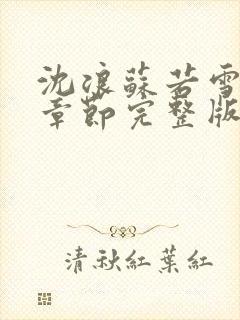 沈浪蘇若雪
章節完整版
清秋紅葉紅